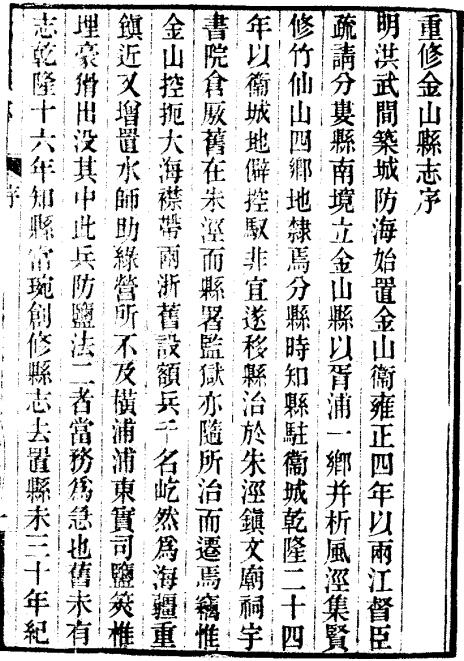 重修金山縣志序
明洪武間築城防海始置金山衞雍正四年以兩江督臣
疏請分婁縣南境立金山縣以胥浦一鄉并析風涇集賢
修竹仙山四鄉地隸焉分縣時知縣駐衞城乾隆二十四
年以衞城地僻控馭非宜遂移縣治於朱涇鎮文廟祠宇
書院倉厫舊在朱涇而縣署監獄亦隨所治而遷焉竊惟
金山控扼大海襟帶兩浙舊設額兵千名屹然爲海疆重
鎮近又增置水師助綠營所不及橫浦浦東實司鹽筴椎
埋豪猾出没其中此兵防鹽法二者當務爲急也舊未有
志乾隆十六年知縣常琬創修縣志去置縣未三十年紀
序
一